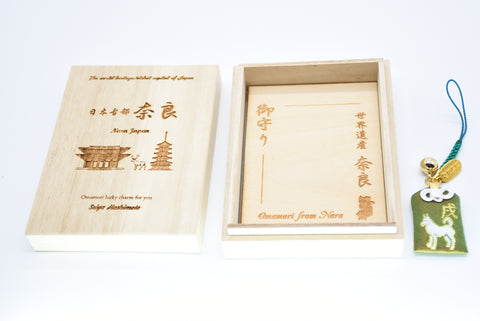 The world heritage, oldest capital of Japan
日本古都 奈良
Nara Japan
Omamori lucky charm for you
Seiya Hashimoto
世界遺産 奈良
御守り
Omamori from Nara
戌